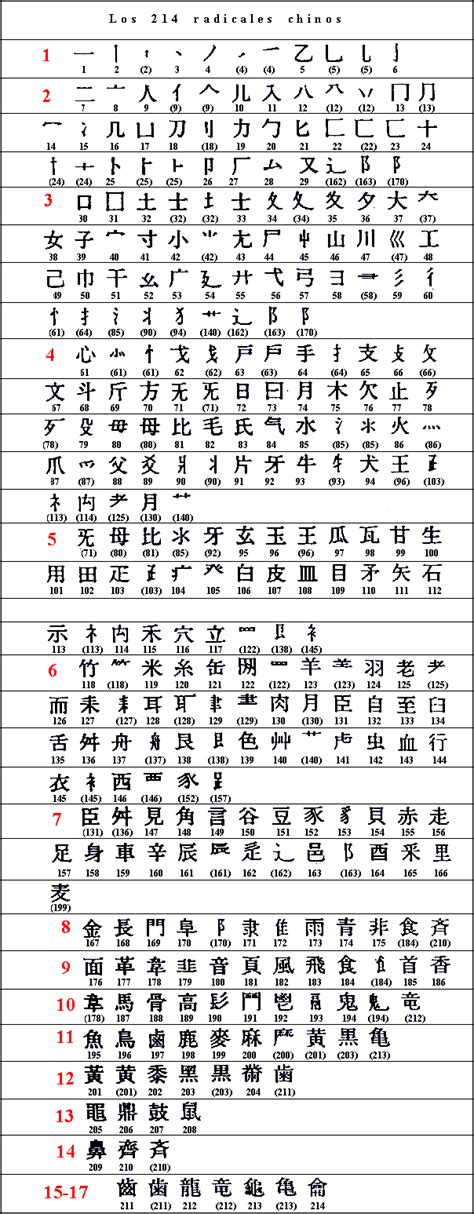 Los 214 radicales chinos
1 一 丨 丶 丿 乙 乚 亅
1 2 (2) 3 4 (4) (4) 5 (5) (5) 6
2 二 亠 人 亻 儿 入 八 冂
7 8 9 (9) (9) 10 11 12 (12) (12) 13 (13)
冖 冫 几 凵 刀 刂 力 勹 匕 匚 匸 十
14 15 16 17 18 (18) 19 20 21 22 (22) 23 24
卜 卩 厂 厶 又 辶 阝 阝
(24) (24) 25 (25) (25) 26 27 28 29 (162) (163) (170)
3 口 囗 土 士 夂 夊 夕 大
30 31 32 (32) (32) 33 34 (34) 35 36 37 (37)
女 子 宀 寸 小 尢 尸 屮 山 川 巛 工
38 39 40 41 42 (42) 43 44 45 46 47 (47) 48
己 巾 干 幺 广 廴 廾 弋 弓 彐 彡 彳
49 50 51 52 53 54 55 56 57 58 (58) 59 60
忄 扌 氵 犭 艹 辶 阝 阝
(61) (64) (85) (90) (94) (140) (162) (163) (170)
4 心 忄 戈 戶 戸 手 扌 支 攵
61 (61) (61) 62 (62) 63 (63) 64 (64) 65 66 (66)
文 斗 斤 方 无 旡 日 曰 月 木 欠 止 歹
67 68 69 70 71 (71) 72 73 74 75 76 77 78
歹 殳 毋 母 比 毛 氏 气 水 氵 氺 火 灬
(78) 79 80 (80) 81 82 83 84 85 (85) (85) 86 (86)
爪 爫 父 爻 爿 丬 片 牙 牛 牜 犬 王
87 (87) 88 89 90 (90) 91 92 93 (93) 94 (96) (103)
礻 禸 耂 月 艹
(113) (114) (125) (130) (140)
5 旡 母 比 氺 牙 玄 玉 王 瓜 瓦 甘 生
(71) (80) (81) (85) (92) 95 96 (96) 97 98 99 100
用 田 疋 疒 癶 白 皮 皿 目 矛 矢 石
101 102 103 (103) 104 105 106 107 108 109 110 111 112
示 礻 禸 禾 穴 立 罒 衤
113 (113) 114 115 116 117 (122) (138) (145)
6 竹 米 糸 缶 网 罒 羊 羽 老 耂
118 (118) 119 120 121 122 (122) 123 (123) 124 125 (125)
而 耒 耳 聿 肉 月 臣 自 至 臼
126 127 (127) 128 (128) 129 (129) 130 (130) 131 132 133 134
舌 舛 舟 艮 色 艸 艹 虍 虫 血 行
135 136 137 (137) 138 (138) 139 140 (140) 141 142 143 144
衣 衤 西 覀 豕
145 (145) 146 (146) (152) (157)
7 臣 舛 見 角 言 谷 豆 豕 豸 貝 赤 走
(131) (136) 147 148 149 150 151 152 153 154 155 156
足 身 車 辛 辰 辵 辶 邑 阝 酉 釆 里
157 158 159 160 161 (161) 162 (162) 163 (163) 164 165 166
麦
(199)
8 金 長 門 阜 阝 隶 隹 雨 青 非 食 斉
167 168 169 170 (170) 171 172 173 174 175 (184) (210)
9 面 革 韋 韭 音 頁 風 飛 食 飠 首 香
176 177 178 179 180 181 182 183 184 (184) 185 186
10 韋 馬 骨 高 髟 鬥 鬯 鬲 鬼 竜
(178) 187 188 189 190 191 192 193 194 (194) (212)
11 魚 鳥 鹵 鹿 麥 麻 黄 黒 亀
195 196 197 198 199 200 (200) (201) (203) (213)
12 黃 黄 黍 黑 黒 黹 歯
201 (201) 202 203 (203) 204 (211)
13 黽 鼎 鼓 鼠
205 206 207 208
14 鼻 齊 斉
209 210 (210)
15-17 齒 歯 龍 竜 龜 亀 龠
211 (211) 212 (212) 213 (213) 214